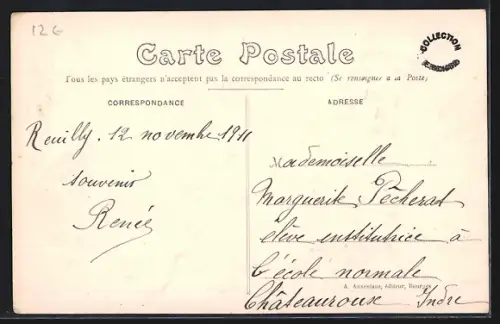 126
COLLECTION
Carte Postale
Tous les pays étrangers n'acceptent pas la correspondance au recto (Se renseigner à la Poste)
CORRESPONDANCE
ADRESSE
Reuilly. 12 novembre 1911
souvenir
Renée
Mademoiselle
Marguerite Pécherat
élève institutrice à
l'école normale
Châteauroux Indre